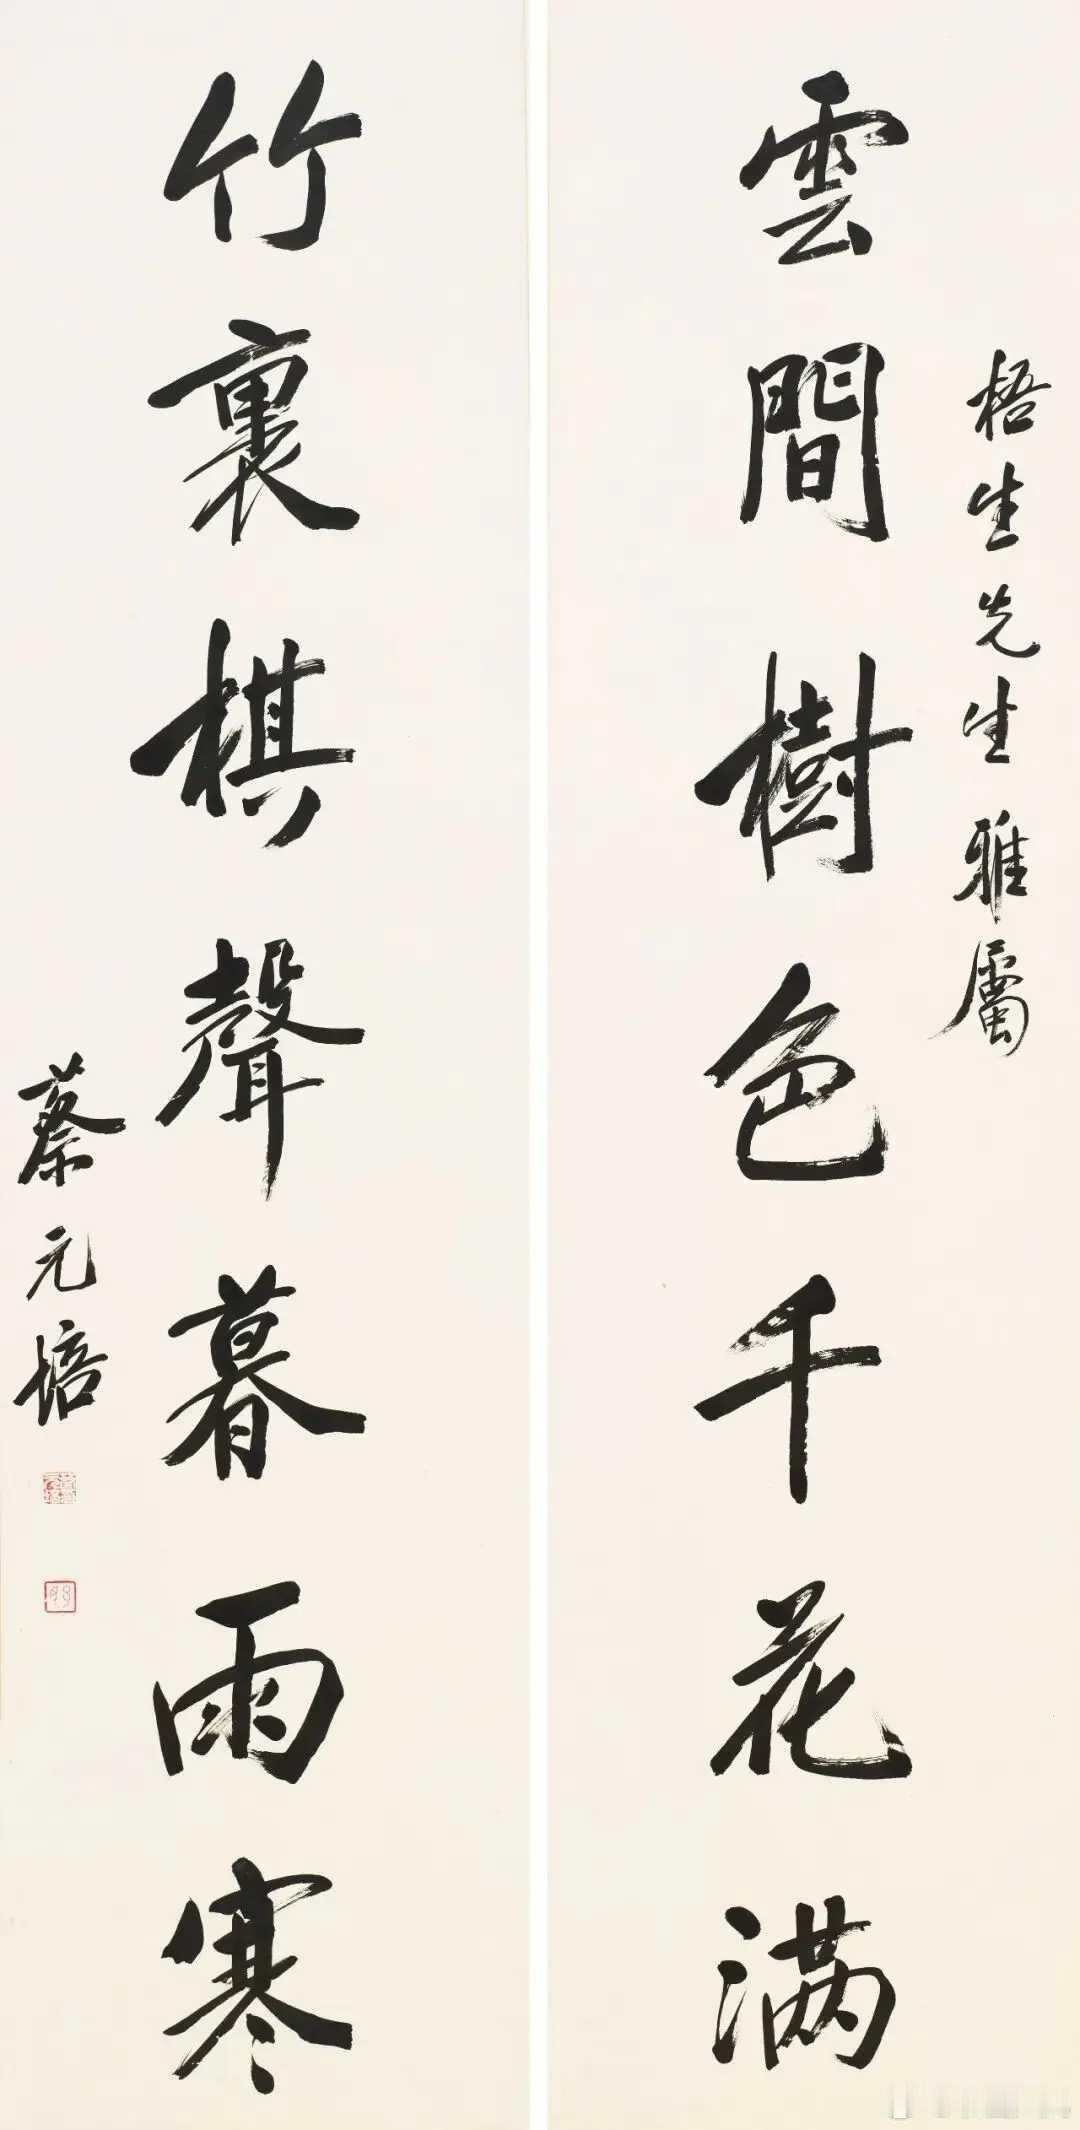 梧生先生雅屬
雲間樹色千花滿
竹裏棋聲暮雨寒
蔡元培